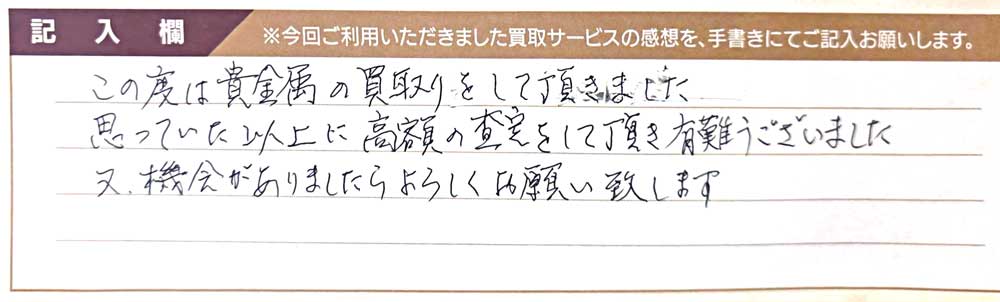 記入欄
※今回ご利用いただきました買取サービスの感想を、手書きにてご記入お願いします。
この度は貴金属の買取りをして頂きました
思っていた以上に高額の査定をして頂き有難うございました
又、機会がありましたらよろしくお願い致します